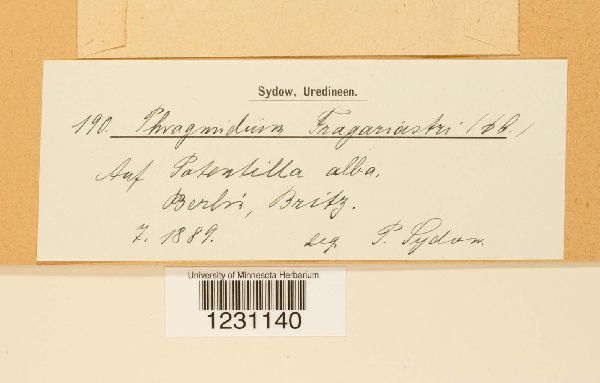 Sydow, Uredineen.
190. Phragmidium Fragariastri (DC.)
Auf Potentilla alba.
Berlin, Britz.
7. 1889. leg. P. Sydow.
University of Minnesota Herbarium
1231140